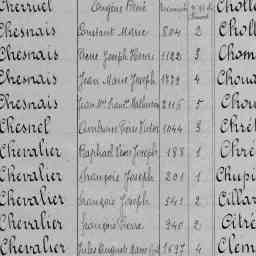 Cherruel Eugène René Chollet
Chesnais Constant Marie 804 2 Choll
Chesnais Pierre Joseph Henri 1122 3 Chom
Chesnais Jean Marie Joseph 1879 4 Choua
Chesnais Jean Mie 2116 5 Chou
Chesnel Ambroise Victor 1044 3 Chrét
Chevalier Raphaël Joseph 188 1 Chré
Chevalier François Joseph 201 1 Chupi
Chevalier François Joseph 541 2 Cillar
Chevalier François Pierre 940 2 Citré
Chevalier Jules Auguste 1697 4 Clem